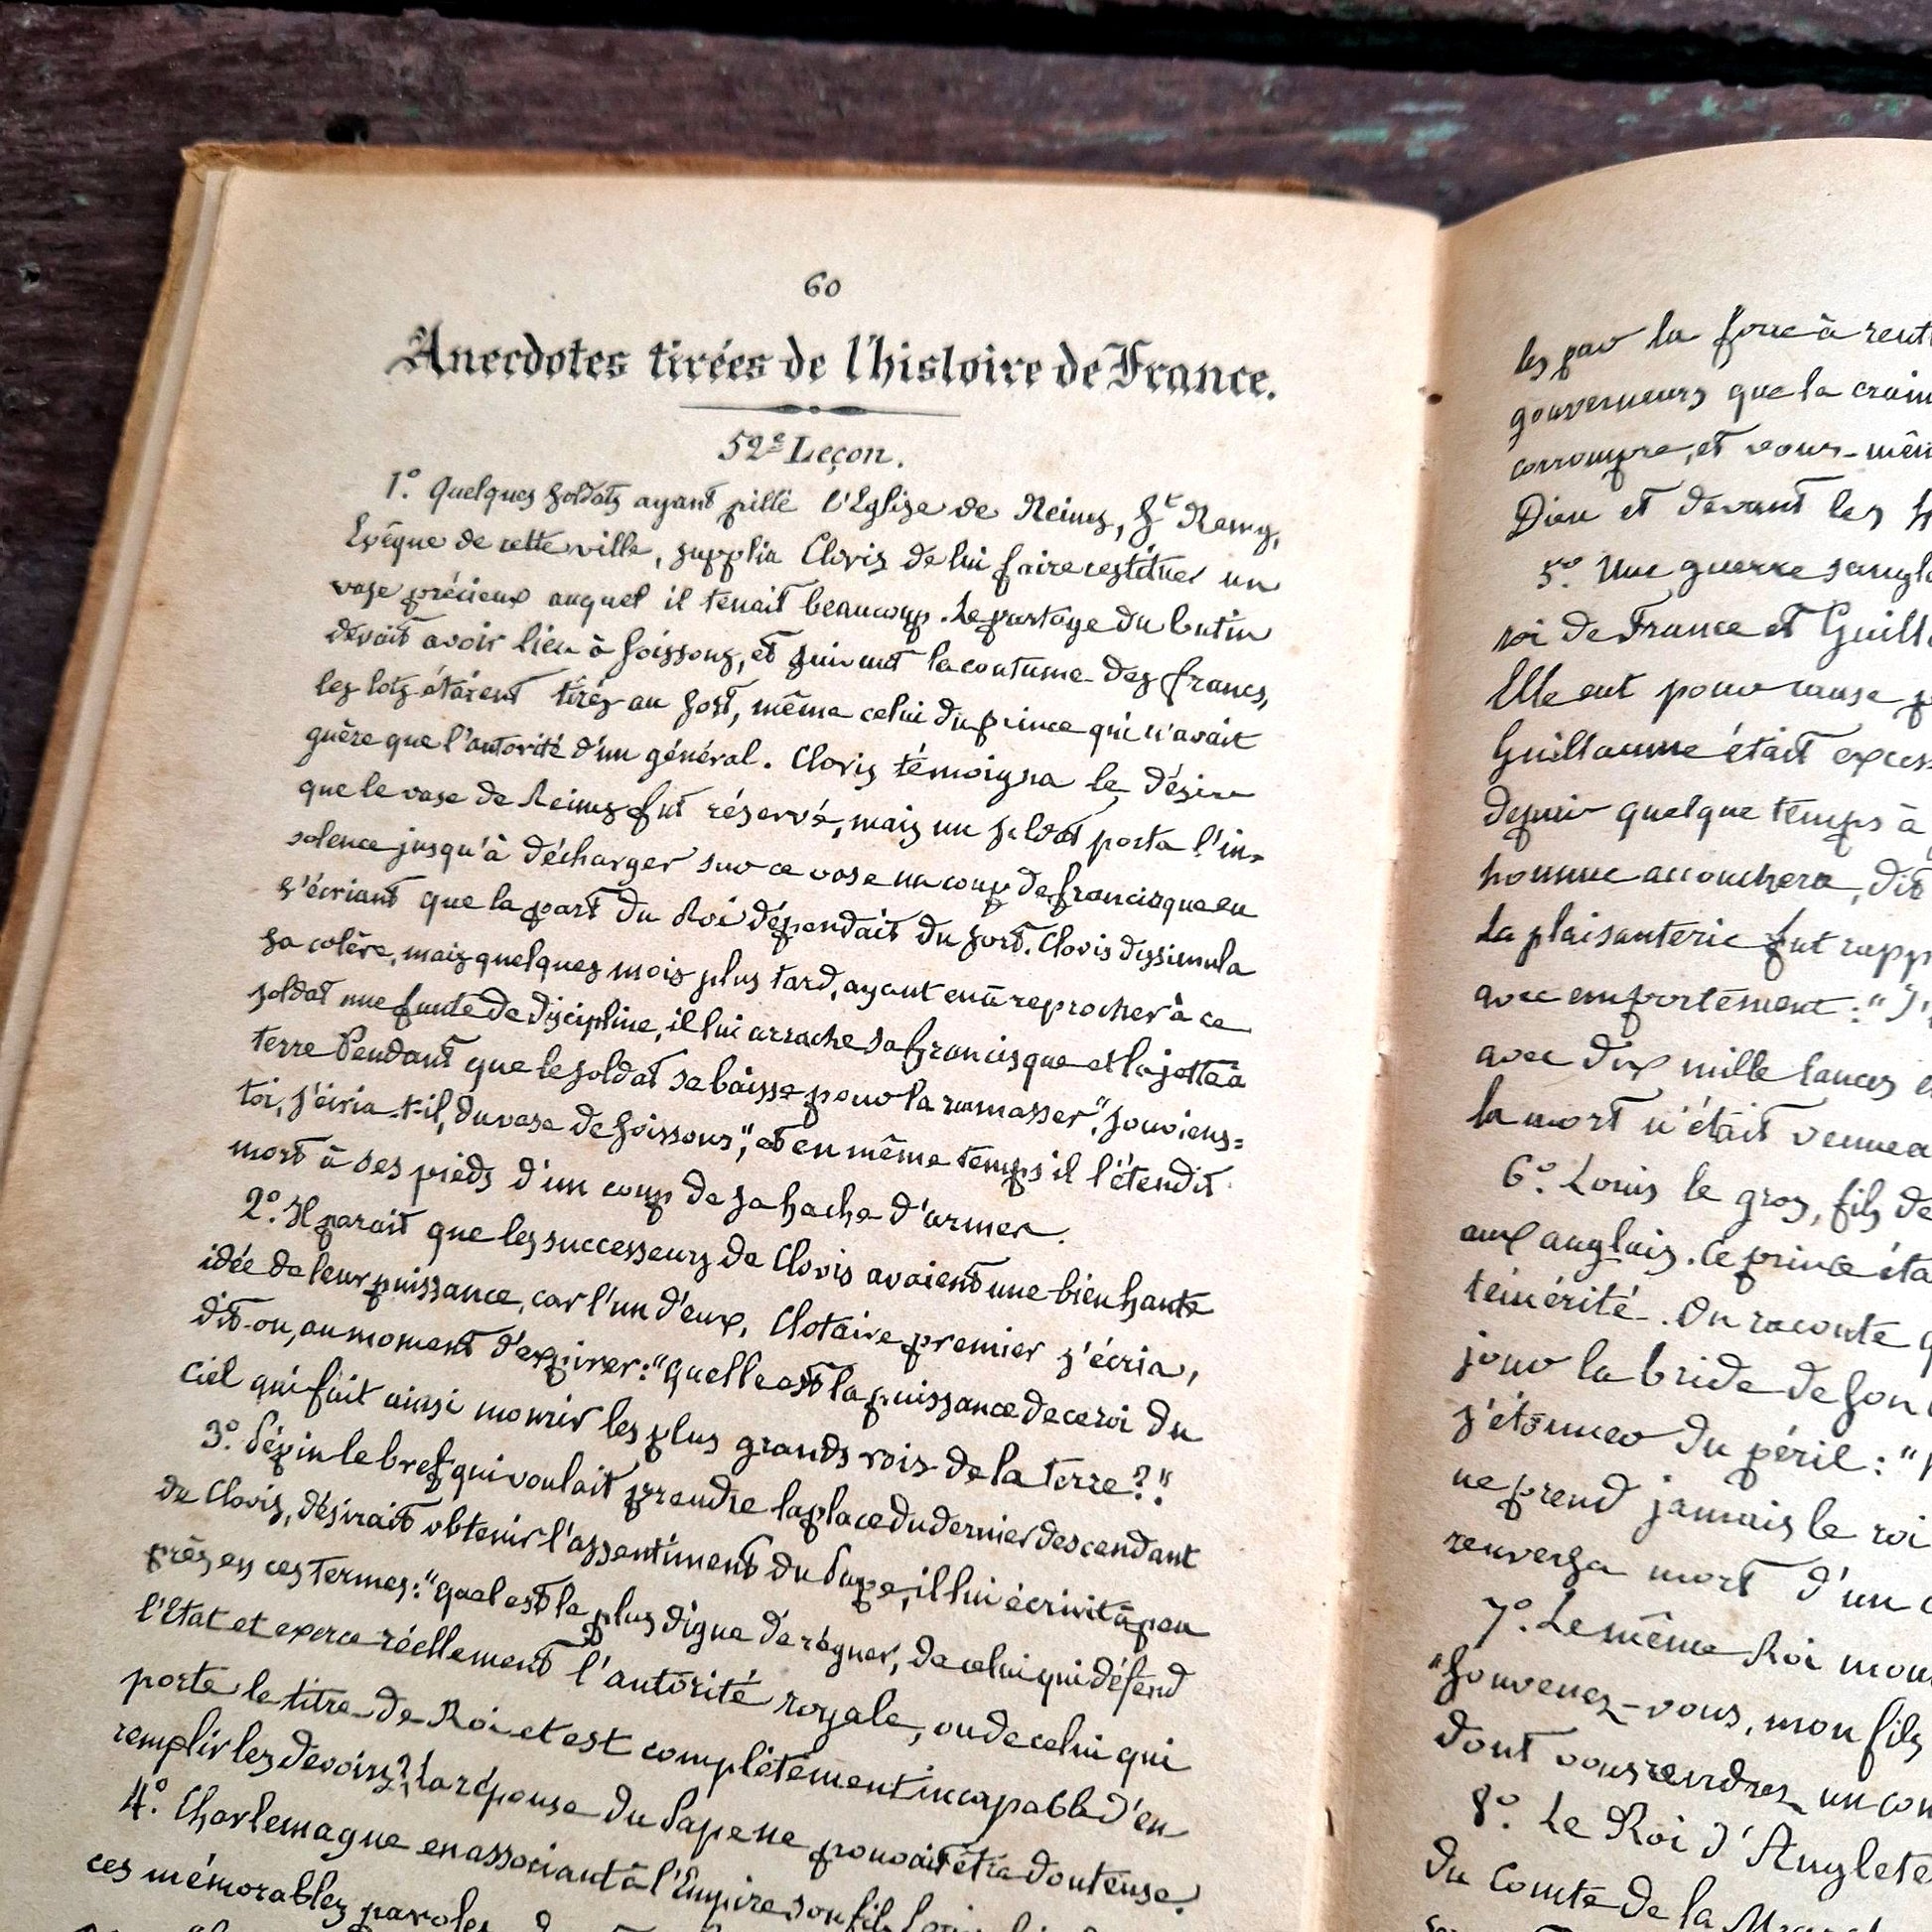 60
Anecdotes tirées de l'histoire de France.
52e Leçon.
1o. Quelques soldats ayant pillé l'Eglise de Reims, St Remy,
Evêque de cette ville, supplia Clovis de lui faire restituer un
vase précieux auquel il tenait beaucoup. Le partage du butin
devait avoir lieu à Soissons, et suivant la coutume des francs,
les lots étaient tirés au sort, même celui du prince qui n'avait
guère que l'autorité d'un général. Clovis témoigna le désir
que le vase de Reims fut réservé, mais un soldat porta l'in=
solence jusqu'à décharger sur ce vase un coup de francisque en
s'écriant que la part du Roi dépendait du sort. Clovis dissimula
sa colère, mais quelques mois plus tard, ayant eu à reprocher à ce
soldat une faute de discipline, il lui arrache sa francisque et la jette à
terre Pendant que le soldat se baisse pour la ramasser "Souviens=
toi, s'écria-t-il, du vase de Soissons", et en même temps il l'étendit
mort à ses pieds d'un coup de sa hache d'armes.
2o. Il parait que les successeurs de Clovis avaient une bien haute
idée de leur puissance, car l'un d'eux, Clotaire premier s'écria,
dit-on, au moment d'expirer: "Quelle est la puissance de ce roi du
ciel qui fait ainsi mourir les plus grands rois de la terre?"
3o. Pépin le bref qui voulait prendre la place du dernier descendant
de Clovis, désirait obtenir l'assentiment du Pape, il lui écrivit à peu
près en ces termes: "Quel est le plus digne de régner, de celui qui défend
l'Etat et exerce réellement l'autorité royale, ou de celui qui
porte le titre de Roi et est complètement incapable d'en
remplir les devoirs?" La réponse du Pape ne pouvait être douteuse.
4o. Charlemagne en associant à l'Empire son fils
ces mémorables paroles
les par la force à
gouverneurs que la
corrompre, et vous-
Dieu et devant les
5o. Une guerre
roi de France et
Elle eut pour cause
Guillaume était
depuis quelque temps à
homme accouchera, dit
La plaisanterie fut
avec emportement: "
avec dix mille lances
la mort n'était
6o. Louis le gros, fils de
aux anglais. Ce prince
témérité. On raconte
jour la bride de son
s'étonner du péril: "
ne prend jamais le roi
renversa mort d'un
7o. Le même Roi
"Souvenez-vous, mon fils
dont vous rendrez un
8o. Le Roi
du Comté de la